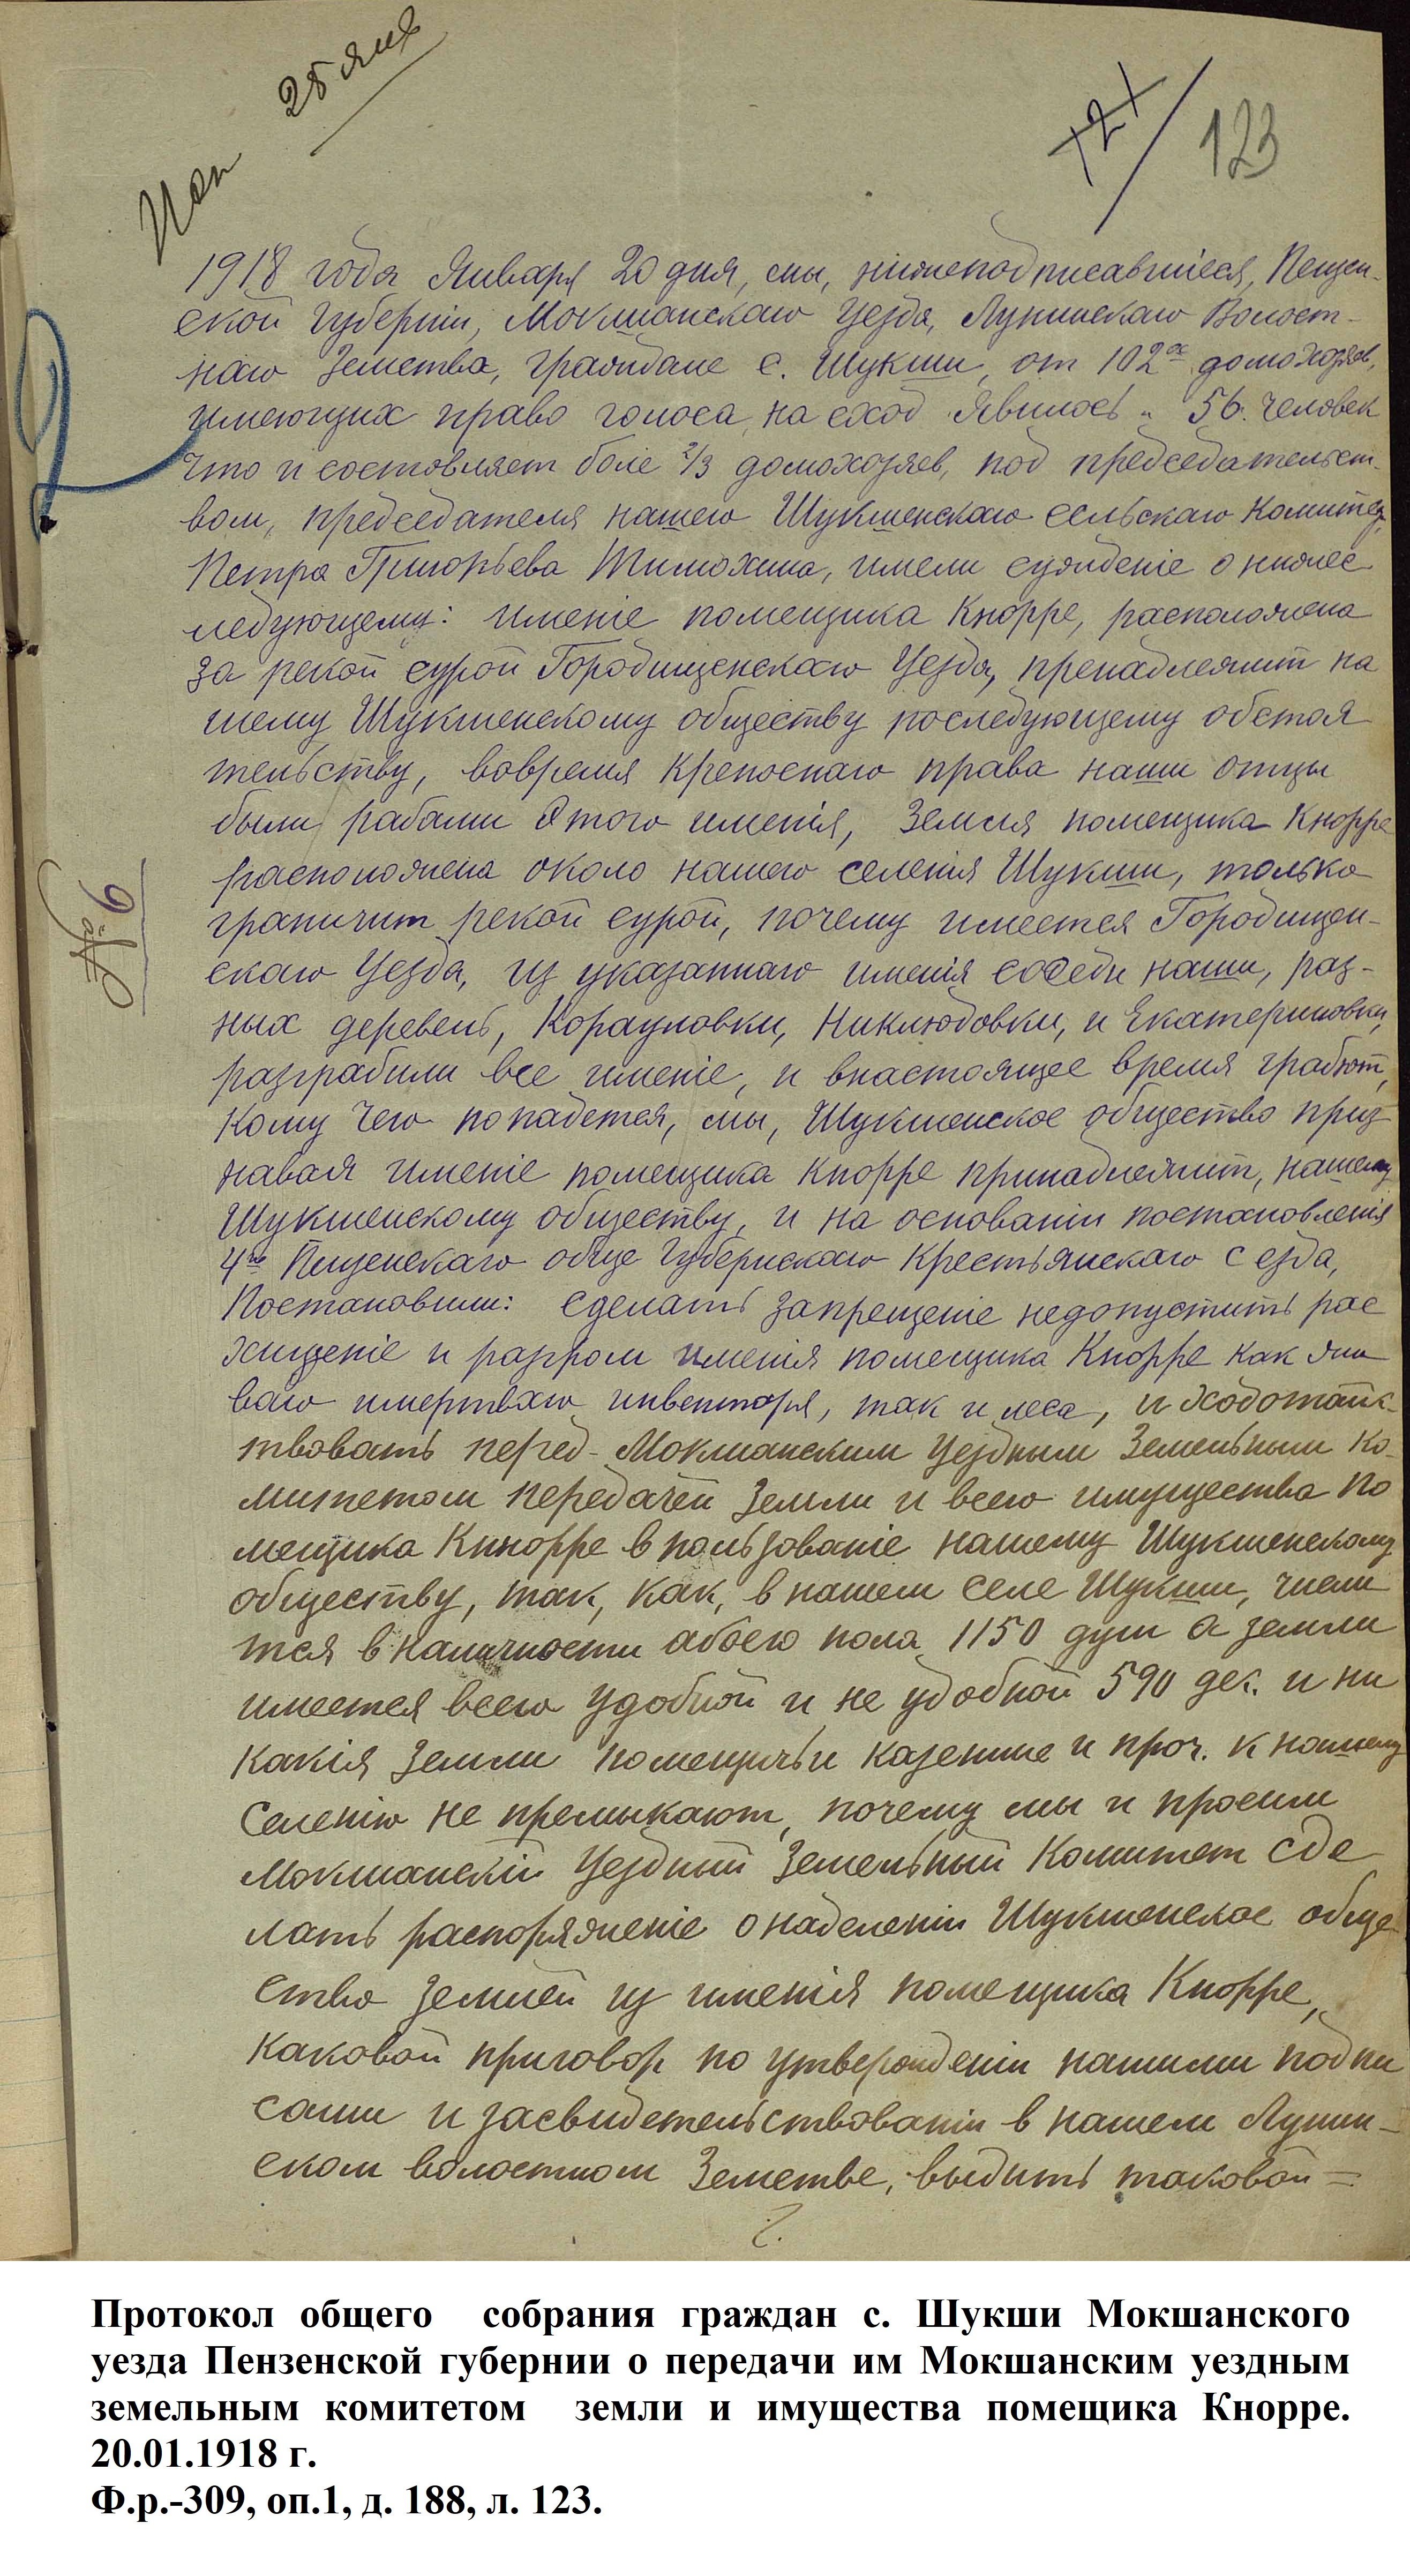 25 янв
121
123
1918 года Января 20 дня, мы, нижеподписавшіеся, Пензен-
ской Губерніи, Мокшанскаго Уезда, Лунинскаго Волост-
наго Земства, граждане с. Шукши, от 102х домохозяев,
имеющих право голоса, на сход явилось " 56. человек
что и состовляет боле 2/3 домохозяев, под председательст-
вом, председателя нашего Шукшенскаго сельскаго Комитета,
Петра Григорьева Тимохина, имели сужденіе о нижес
ледующему: именіе помещика Кнорре, расположена
за рекой сурой Городищенскаго Уезда, пренадлежит на
шему Шукшенскому обществу последующему обстоя
тельству, вовремя Крепоснаго права наши отцы
были рабами этого именія, Земля помещика Кнорре
расположена около нашего селенія Шукши, только
граничит рекой сурой, почему имеется Городищен-
скаго Уезда, из указаннаго именія соседи наши, раз-
ных деревень, Корауловки, Никлюдовки, и Екатериновки,
разграбили все именіе, и внастоящее время грабют,
Кому чего попадется, мы, Шукшенское общество приз
навая именіе помещика Кнорре принадлежит, нашему
Шукшенскому обществу, и на основаніи постановленія
4го Пензенскаго обще Губернскаго Крестьянскаго с езда,
Постановили: сделать запрещеніе недопустить рас
хищеніе и разгром именія помещика Кнорре как жи
ваго имертваго инвентаря, так и леса, и ходотайс-
твовать перед Мокшанским Уездным Земельным Ко-
митетом передачей Земли и всего имущества по
мещика Кннорре в пользованіе нашему Шукшенскому
обществу, так, как, в нашем селе Шукши, числи
тся в наличности обоего пола 1150 душ а земли
имеется всего удобной и не удобной 590 дес. и ни
какія Земли помещичьи казенные и проч. к нашему
Селенію не премыкают, почему мы и просим
Мокшанскій Уездный Земельный Комитет сде
лать распоряженіе о наделеніи Шукшенское обще
ство Землей из именія помещика Кнорре,
каковой приговор по утвержденіи нашими подпи
сами и засвидетельствованіи в нашем Лунин-
ском волостном Земстве, выдить таковой =
№ 6
Протокол общего собрания граждан с. Шукши Мокшанского
уезда Пензенской губернии о передачи им Мокшанским уездным
земельным комитетом земли и имущества помещика Кнорре.
20.01.1918 г.
Ф.р.-309, оп.1, д. 188, л. 123.